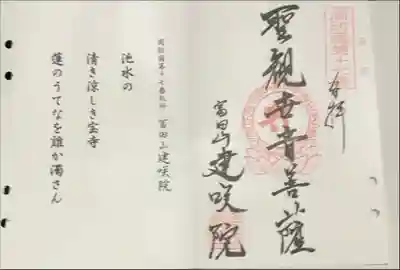 奉拝
聖観世音菩薩
富田山建咲院
周防国第十七番札所 富田山建咲院
池水の
清き涼しき宝寺
蓮のうてなを誰か濁さん